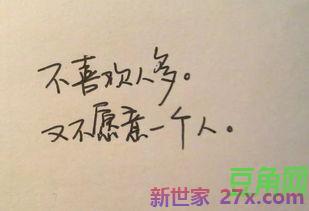 不喜欢人多。
又不愿意一个人。
豆角网
新世家 27x.com